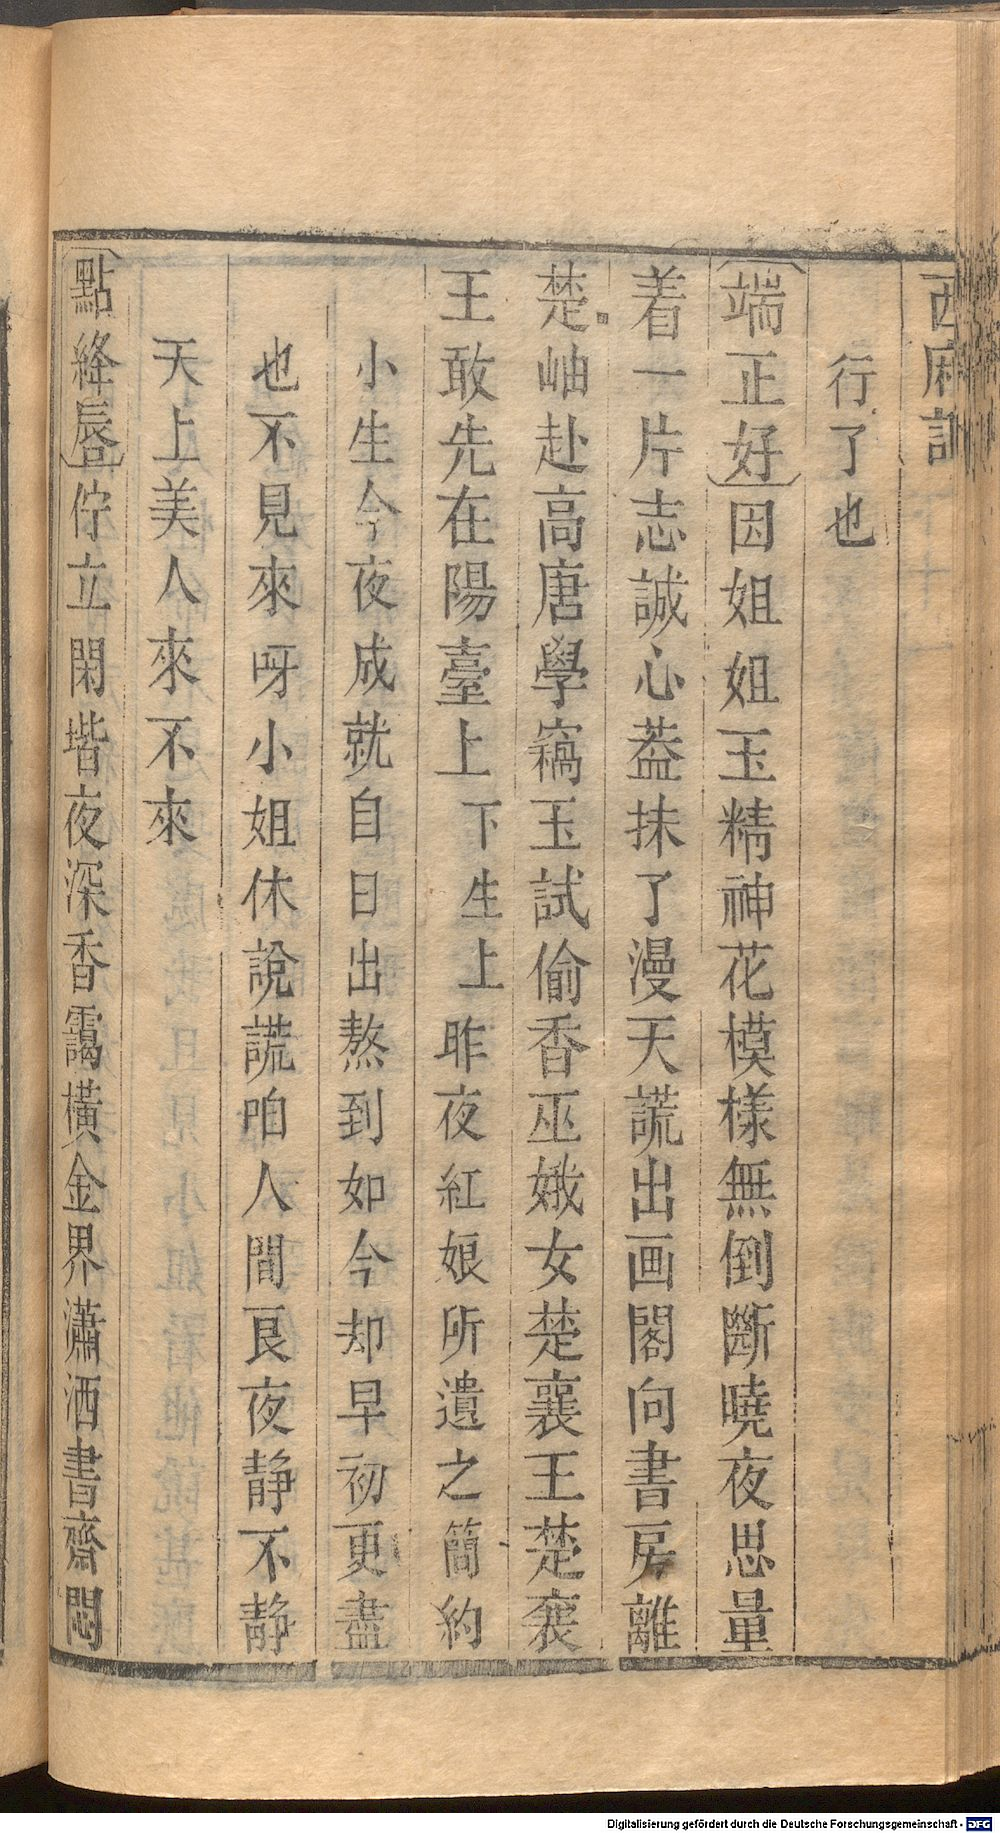 西廂記
行了也
端正好因姐姐玉精神花模樣無倒斷曉夜思量
着一片志誠心葢抹了漫天謊出画閣向書房離
楚岫赴高唐學竊玉試偷香巫娥女楚襄王楚襄
王敢先在陽臺上下生上昨夜紅娘所遺之簡約
小生今夜成就自日出熬到如今却早初更盡
也不見來呀小姐休說謊咱人間良夜静不静
天上美人來不來
點絳唇佇立閑堦夜深香靄橫金界瀟洒書齋悶
Digitalisierung gefördert durch die Deutsche Forschungsgemeinschaft - DFG